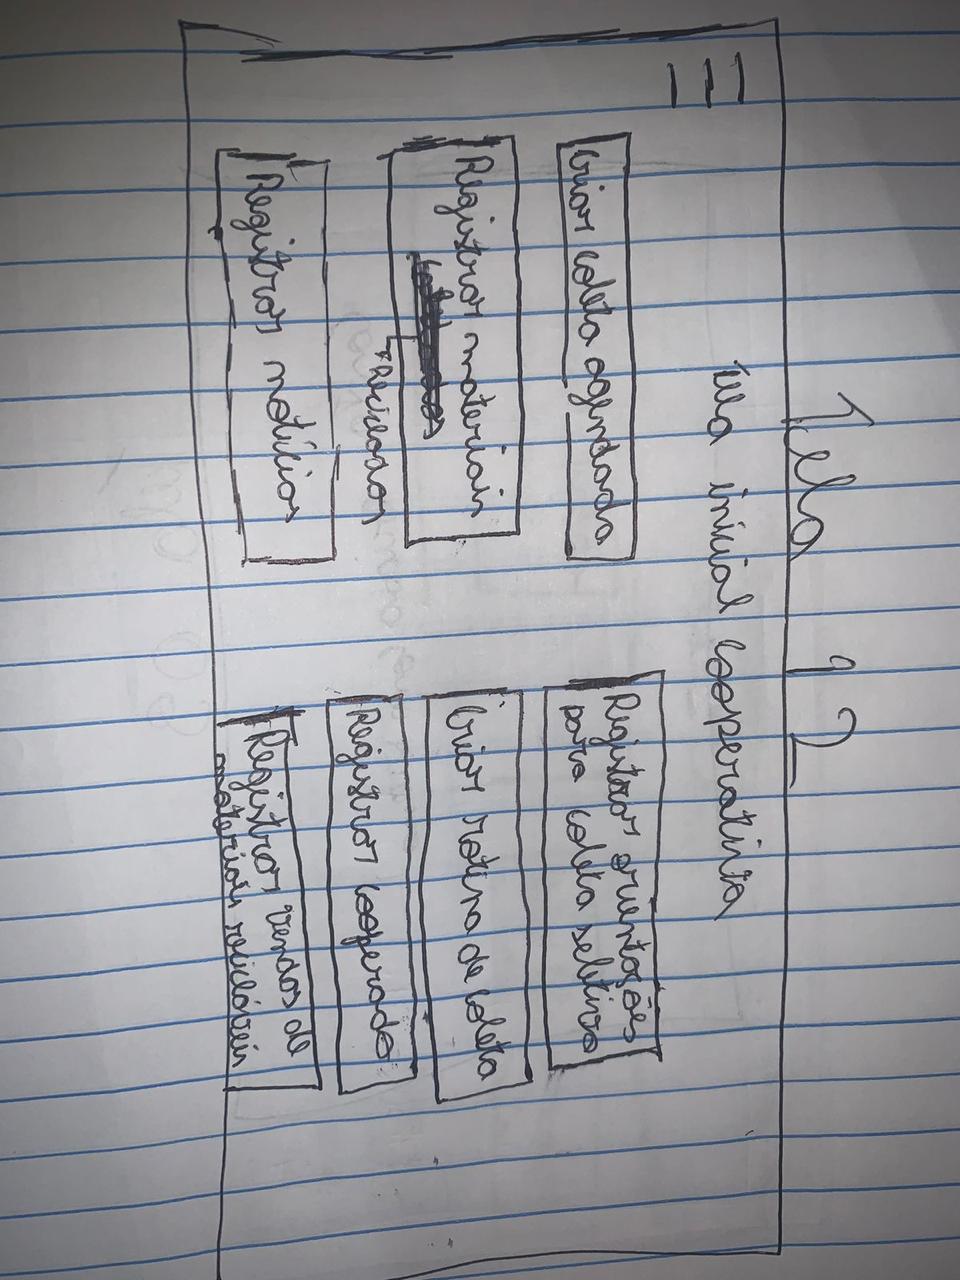 Tela 12
Tela inicial cooperativa
Criar coleta agendada
Registrar materiais
reciclados
Registrar notícias
Registrar orientações
para coleta seletiva
Criar rotina de coleta
Registrar cooperado
Registrar vendas de
materiais recicláveis